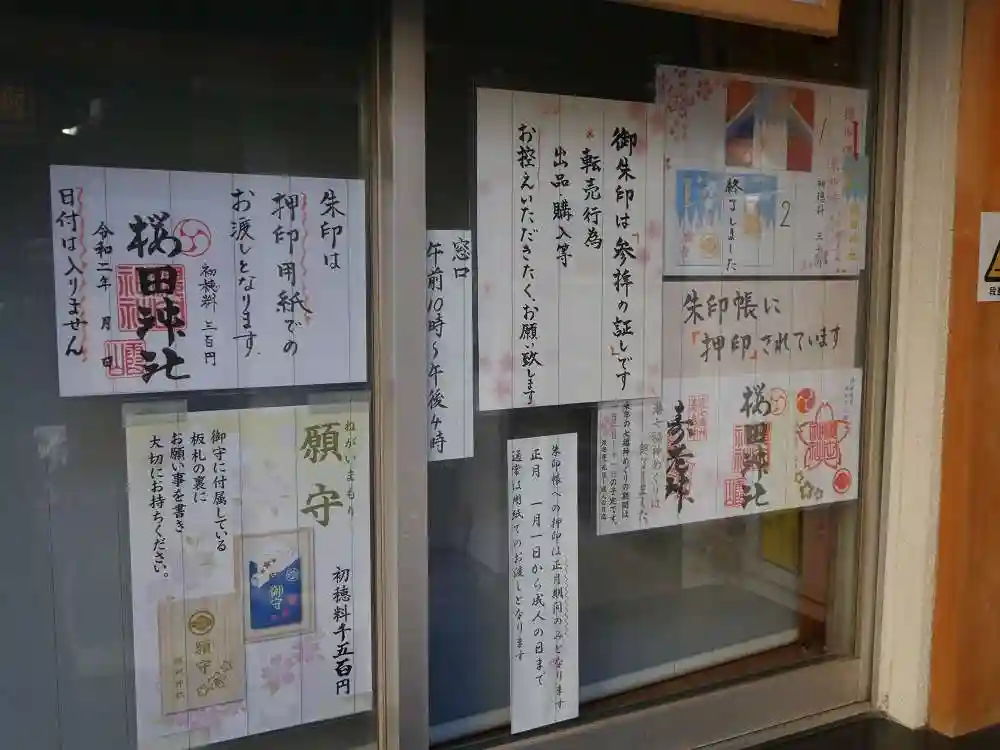 朱印は
押印用紙での
お渡しとなります。
初穂料 三百円
桜田神社
令和二年 月 日
日付は入りません
ねがいまもり
願守
初穂料千五百円
御守に付属している
板札の裏に
お願い事を書き
大切にお持ちください。
御守
願守
窓口
午前10時~午後4時
御朱印は「参拝の証し」です
*転売行為
出品購入等
お控えいただきたく、お願い致します
1
2
終了しました
初穂料
朱印帳に
「押印」されています
桜田神社
寿老神
港七福神めぐりは
終了しました
朱印帳への押印は正月期間のみとなります
正月 一月一日から成人の日まで
通常は用紙でのお渡しとなります